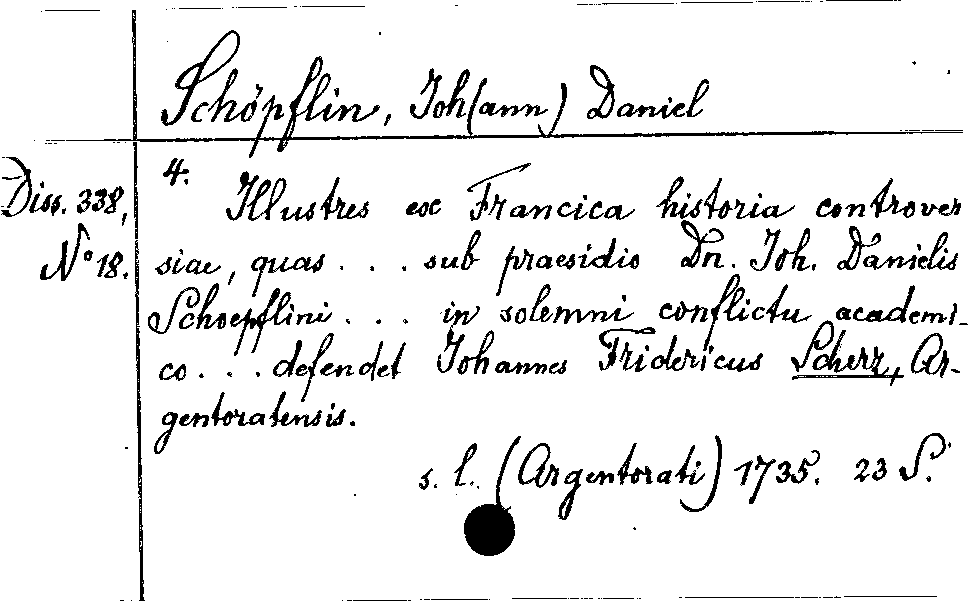 Schöpflin, Joh(ann) Daniel
Diss. 338,
No 18.
4.
Illustres ex Francica historia controver
siae, quas . . . sub praesidio Dn. Joh. Danielis
Schoepflini . . . in solemni conflictu academi-
co . . . defendet Johannes Fridericus Scherz, Ar-
gentoratensis.
s. l. (Argentorati) 1735. 23 S.